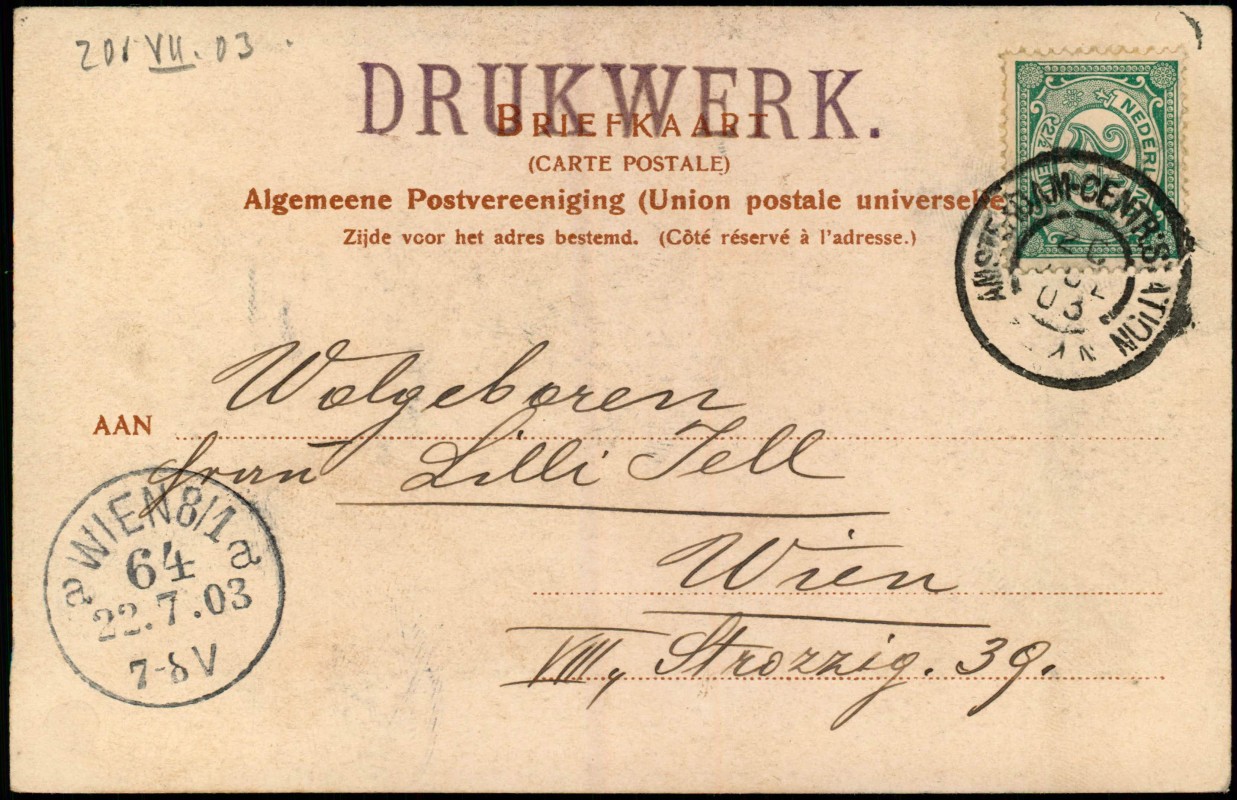 VII. 03
DRUKWERK.
BRIEFKAART
(CARTE POSTALE)
Algemeene Postvereeniging (Union postale universelle
Zijde voor het adres bestemd. (Côté réservé à l'adresse.)
NEDERL
2½
AMSTERDAM-CENTR:STATION
20
JUL
03
Wolgeboren
AAN
Frau Lilli Tell
Wien
VIII, Strozzig. 39.
WIEN 8/1
64
22.7.03
7-8V